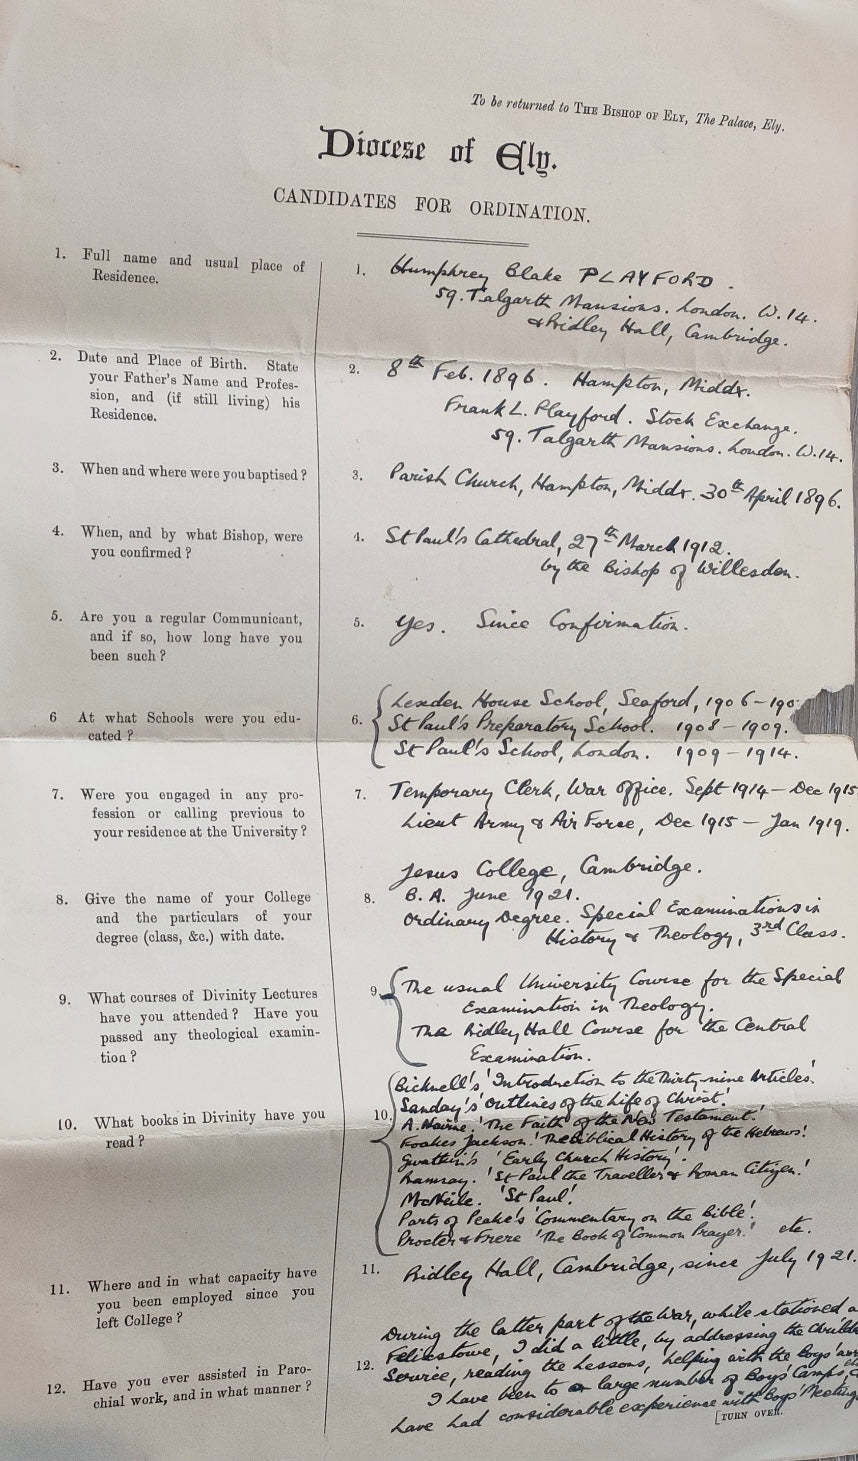 To be returned to THE BISHOP OF ELY, The Palace, Ely.
Diocese of Ely.
CANDIDATES FOR ORDINATION.
1. Full name and usual place of
Residence.
1. Humphrey Blake PLAYFORD.
59. Talgarth Mansions. London. W.14.
& Ridley Hall, Cambridge.
2. Date and Place of Birth. State
your Father's Name and Profes-
sion, and (if still living) his
Residence.
2. 8th Feb. 1896. Hampton, Middx.
Frank L. Playford. Stock Exchange.
59. Talgarth Mansions. London. W.14.
3. When and where were you baptised?
3. Parish Church, Hampton, Middx. 30th April 1896.
4. When, and by what Bishop, were
you confirmed?
4. St Paul's Cathedral, 27th March 1912.
by the Bishop of Willesden.
5. Are you a regular Communicant,
and if so, how long have you
been such?
5. Yes. Since Confirmation.
6 At what Schools were you edu-
cated?
6. House School, Seaford, 1906-190
St Paul's Preparatory School. 1908-1909.
St Paul's School, London. 1909-1914.
7. Were you engaged in any pro-
fession or calling previous to
your residence at the University?
7. Temporary Clerk, War Office. Sept 1914 - Dec 1915
Lieut Army & Air Force, Dec 1915 - Jan 1919.
8. Give the name of your College
and the particulars of your
degree (class, &c.) with date.
Jesus College, Cambridge.
8. B.A. June 1921.
Ordinary Degree. Special Examinations in
History & Theology, 3rd Class.
9. What courses of Divinity Lectures
have you attended? Have you
passed any theological examin-
tion?
9. The usual University Course for the Special
Examination in Theology.
The Ridley Hall Course for the Central
Examination.
10. What books in Divinity have you
read?
Bicknell's 'Introduction to the Thirty-nine Articles.'
Sanday's 'Outlines of the Life of Christ.'
10. A. Nairne. 'The Faith of the New Testament.'
Foakes Jackson. 'The Biblical History of the Hebrews.'
Gwatkin's 'Early Church History'.
Ramsay. 'St Paul the Traveller & Roman Citizen.'
McNeile. 'St Paul.'
Parts of Peake's 'Commentary on the Bible'.
Procter & Frere 'The Book of Common Prayer.' etc.
11. Where and in what capacity have
you been employed since you
left College?
11. Ridley Hall, Cambridge, since July 1921.
12. Have you ever assisted in Paro-
chial work, and in what manner?
During the latter part of the War, while stationed a
Felixstowe, I did a little, by addressing the Childre
12. Service, reading the Lessons, helping with the Boys'
I have been to a large number of Boys' Camps,
have had considerable experience with Boys' Meeting
[TURN OVER.